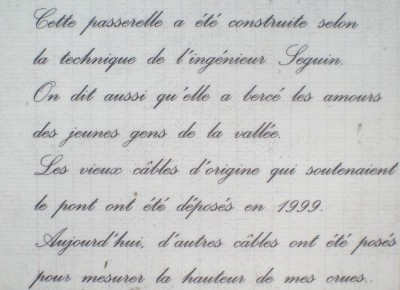 Cette passerelle a été construite selon
la technique de l'ingénieur Seguin.
On dit aussi qu'elle a bercé les amours
des jeunes gens de la vallée.
Les vieux câbles d'origine qui soutenaient
le pont ont été déposés en 1999.
Aujourd'hui, d'autres câbles ont été posés
pour mesurer la hauteur de mes crues..